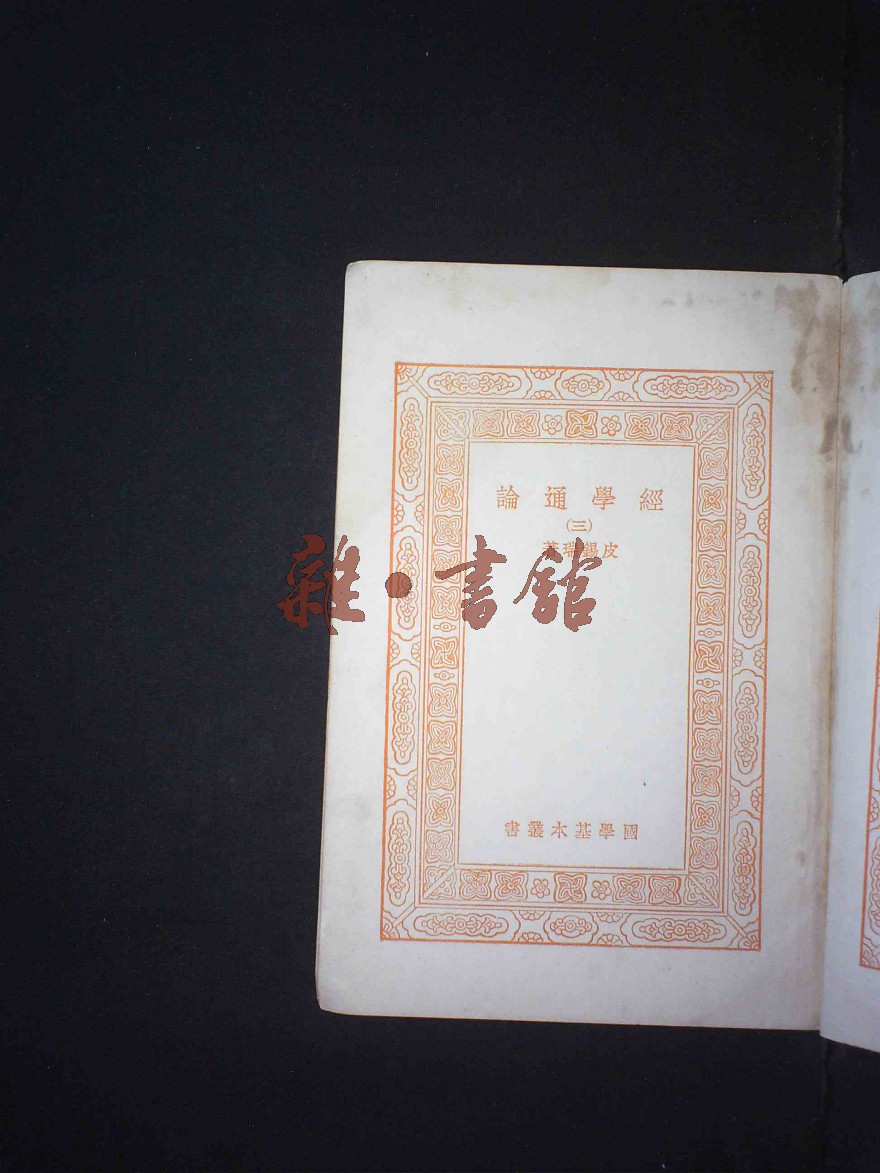 經學通論
(三)
皮錫瑞著
雜·書館
國學基本叢書